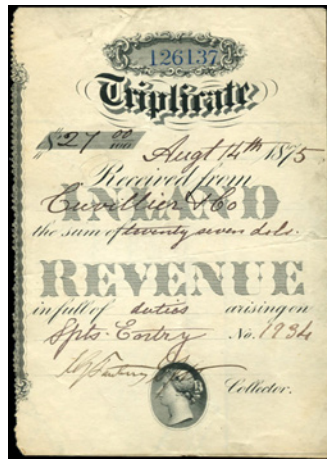 126137
Triplicate
$27 00/100
Augt 14th 1875
Received from
Cuvillier & Co
INLAND
the sum of twenty seven dols.
REVENUE
in full of duties arising on
Spts. Entry No. 1934
Collector.